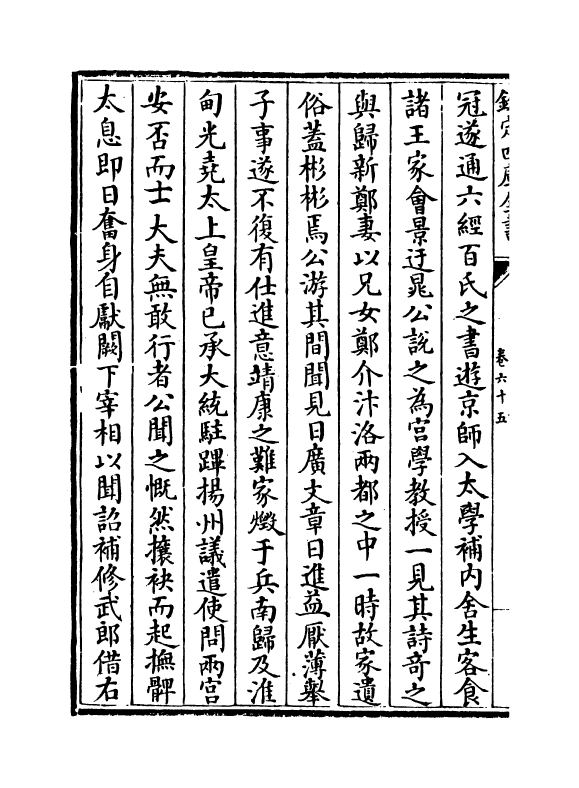 欽定四庫全書
卷六十五
冠遂通六經百氏之書遊京師入太學補内舍生客食
諸王家會景迂晁公說之為宮學教授一見其詩奇之
與歸新鄭妻以兄女鄭介汴洛兩都之中一時故家遺
俗蓋彬彬焉公游其間聞見日廣文章日進益厭薄舉
子事遂不復有仕進意靖康之難家燬于兵南歸及淮
甸光堯太上皇帝已承大統駐蹕揚州議遣使問兩宮
安否而士大夫無敢行者公聞之慨然攘袂而起撫髀
太息即日奮身自獻闕下宰相以聞詔補修武郎借右